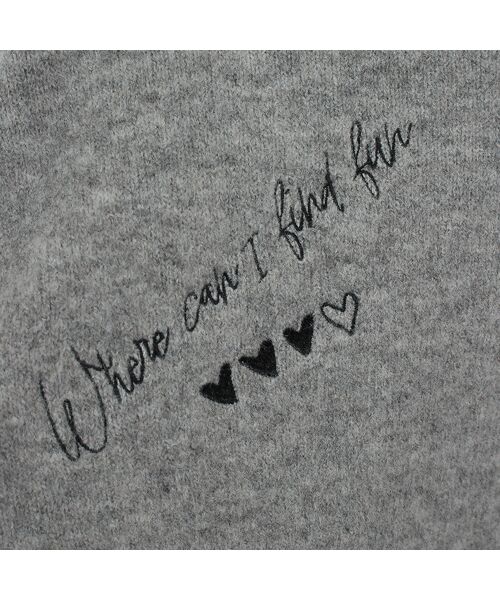 Where can I find fun